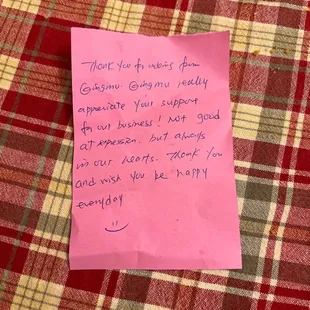 Thank you for ordering from
Gingmu. Gingmu really
appreciate your support
for our business! not good
at expression. but always
in our hearts. Thank you
and wish you be happy
everyday